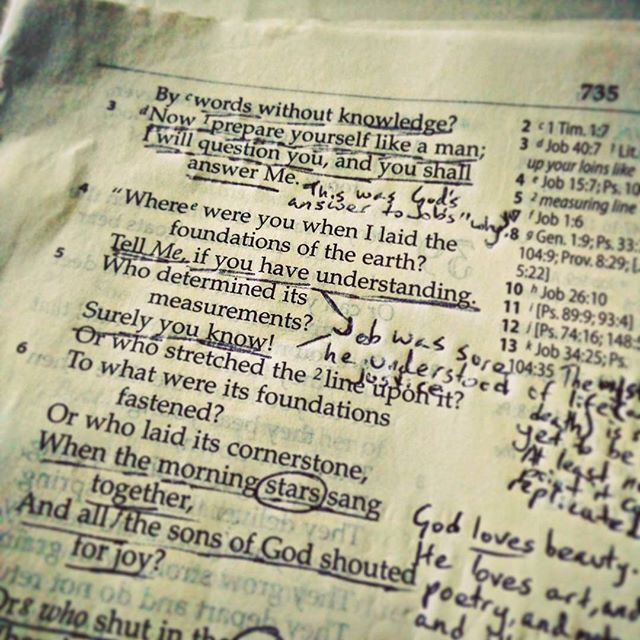 735
By cwords without knowledge?
3 dNow 1prepare yourself like a man;
I will question you, and you shall
answer Me.
This was God's
answer to Job's "why."
4 "Wheree were you when I laid the
foundations of the earth?
Tell Me, if you have understanding.
5 Who determined its
measurements?
Surely you know!
Job was sure
he understood
justice
Or who stretched the 2line upon it?
6 To what were its foundations
fastened?
Or who laid its cornerstone,
7 When the morning stars sang
together,
And all the sons of God shouted
for joy?
Or8 who shut in the
2 c1 Tim. 1:7
3 dJob 40:7 1Lit.
up your loins like
4 eJob 15:7; Ps. 10
5 2measuring line
7 fJob 1:6
8 gGen. 1:9; Ps. 33:
104:9; Prov. 8:29; [
5:22]
10 hJob 26:10
11 i[Ps. 89:9; 93:4]
12 j[Ps. 74:16; 148:5
13 kJob 34:25; Ps.
104:35
of life
death is
yet to be
At least
God loves beauty.
He loves art, and
poetry, and
and